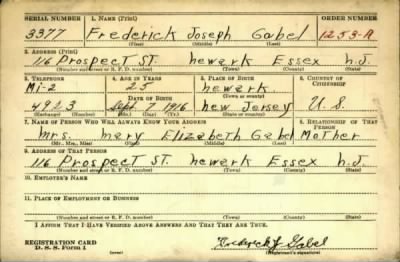 SERIAL NUMBER 1. NAME (Print) ORDER NUMBER
3377 Frederick Joseph Gabel 1253-A
(First) (Middle) (Last)
2. ADDRESS (Print)
116 Prospect ST. Newark Essex N.J.
(Number and street or R. F. D. number) (Town) (County) (State)
3. TELEPHONE 4. AGE IN YEARS 5. PLACE OF BIRTH 6. COUNTRY OF CITIZENSHIP
Mi-2 25 Newark
DATE OF BIRTH (Town or county)
4923 Sept. 7 1916 New Jersey U.S.
(Exchange) (Number) (Mo.) (Day) (Yr.) (State or country)
7. NAME OF PERSON WHO WILL ALWAYS KNOW YOUR ADDRESS 8. RELATIONSHIP OF THAT PERSON
Mrs. Mary Elizabeth Gabel Mother
(Mr., Mrs., Miss) (First) (Middle) (Last)
9. ADDRESS OF THAT PERSON
116 Prospect ST. Newark Essex N.J.
(Number and street or R. F. D. number) (Town) (County) (State)
10. EMPLOYER'S NAME
11. PLACE OF EMPLOYMENT OR BUSINESS
(Number and street or R. F. D. number) (Town) (County) (State)
I AFFIRM THAT I HAVE VERIFIED ABOVE ANSWERS AND THAT THEY ARE TRUE.
REGISTRATION CARD
D. S. S. Form 1 Frederick J Gabel
(Registrant's signature)